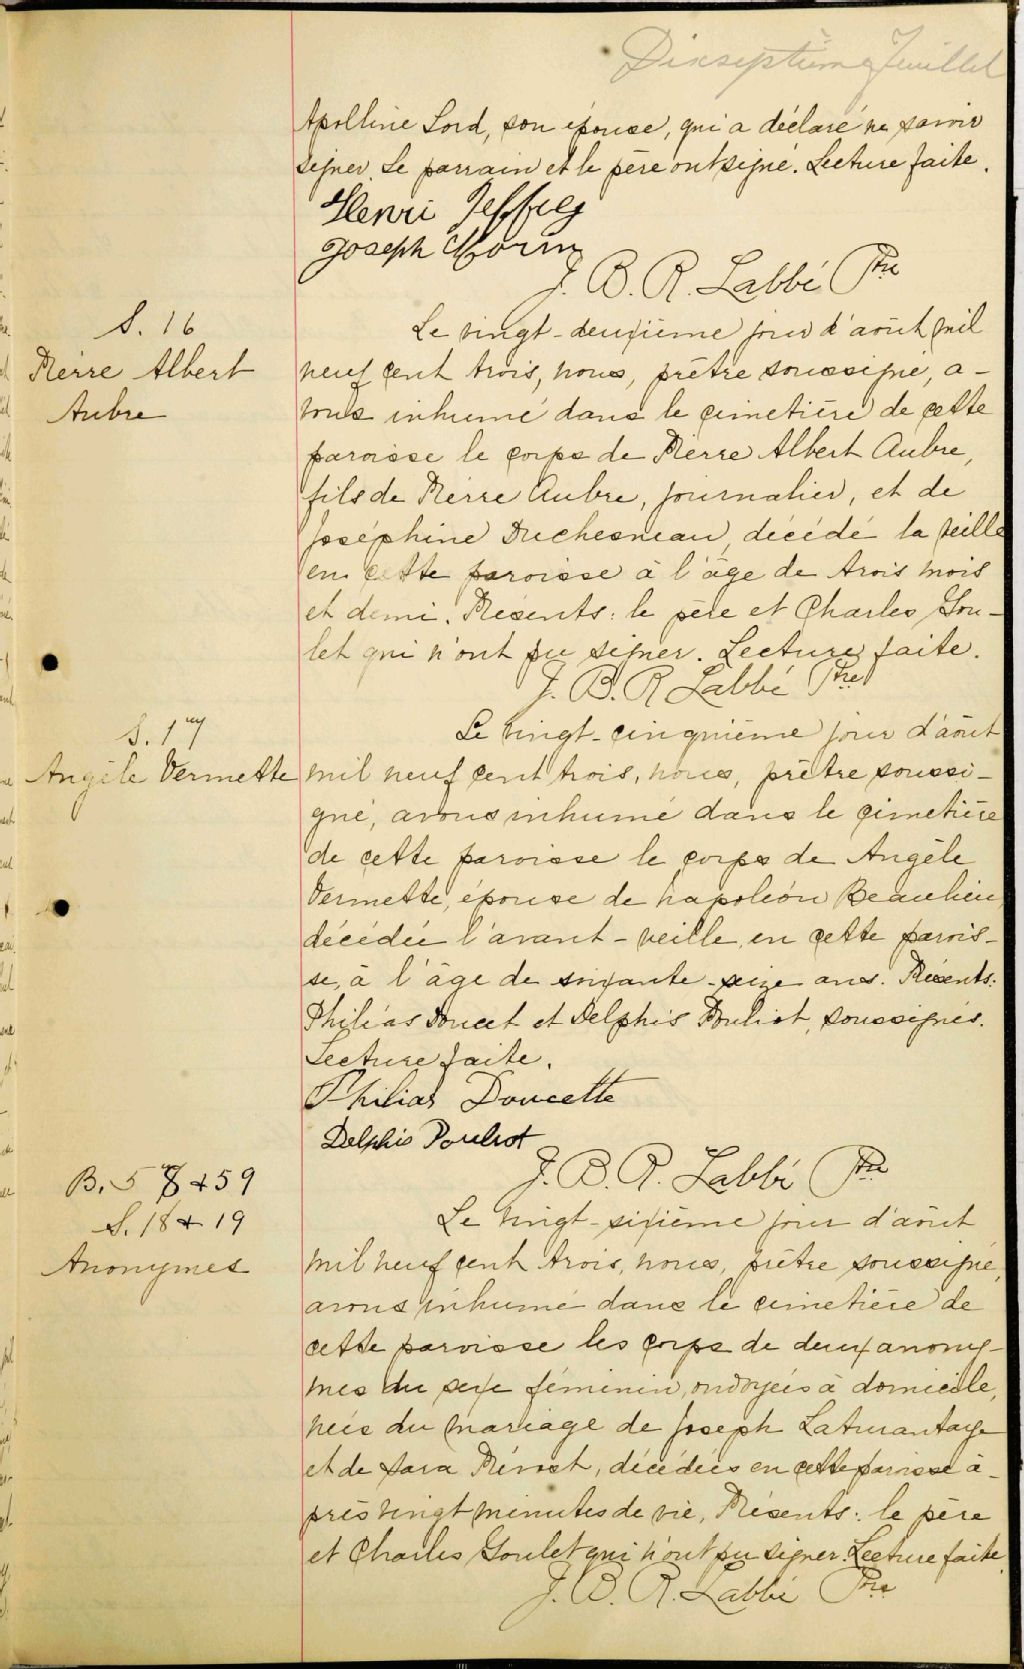 Dixseptième feuillet
Apolline Lord, son épouse, qui a déclaré ne savoir
signer. Le parrain et le père ont signé. Lecture faite.
Henri Jeffrey
Joseph Morin
J. B. R. Labbé Ptre
S. 16
Pierre Albert
Aubre
Le vingt-deuxième jour d'août mil
neuf cent trois, nous, prêtre soussigné, a-
vons inhumé dans le cimetière de cette
paroisse le corps de Pierre Albert Aubre,
fils de Pierre Aubre, journalier, et de
Joséphine Duchesneau, décédé la veille
en cette paroisse à l'âge de trois mois
et demi. Présents: le père et Charles Gou-
let qui n'ont pu signer. Lecture faite.
J. B. R Labbé Ptre
S. 17
Angèle Vermette
Le vingt-cinquième jour d'août
mil neuf cent trois, nous, prêtre soussi-
gné, avons inhumé dans le cimetière
de cette paroisse le corps de Angèle
Vermette, épouse de Napoléon Beaulieu,
décédée l'avant-veille en cette parois-
se, à l'âge de soixante-seize ans. Présents:
Philias Doucet et Delphis Pouliot, soussignés.
Lecture faite.
Philias Doucette
Delphis Pouliot
J. B. R. Labbé Ptre
B. 58 & 59
S. 18 & 19
Anonymes
Le vingt-sixième jour d'août
mil neuf cent trois, nous, prêtre soussigné,
avons inhumé dans le cimetière de
cette paroisse les corps de deux anony-
mes du sexe féminin, ondoyées à domicile,
nées du mariage de Joseph Laturantaye
et de Sara Prévost, décédées en cette paroisse a-
près vingt minutes de vie. Présents: le père
et Charles Goulet qui n'ont pu signer. Lecture faite.
J. B. R. Labbé Ptre